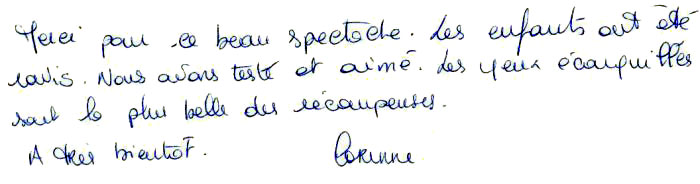 Merci pour ce beau spectacle. Les enfants ont été
ravis. Nous avons testé et aimé. Les yeux écarquillés
sont la plus belle des récompenses.
A très bientôt. Corinne